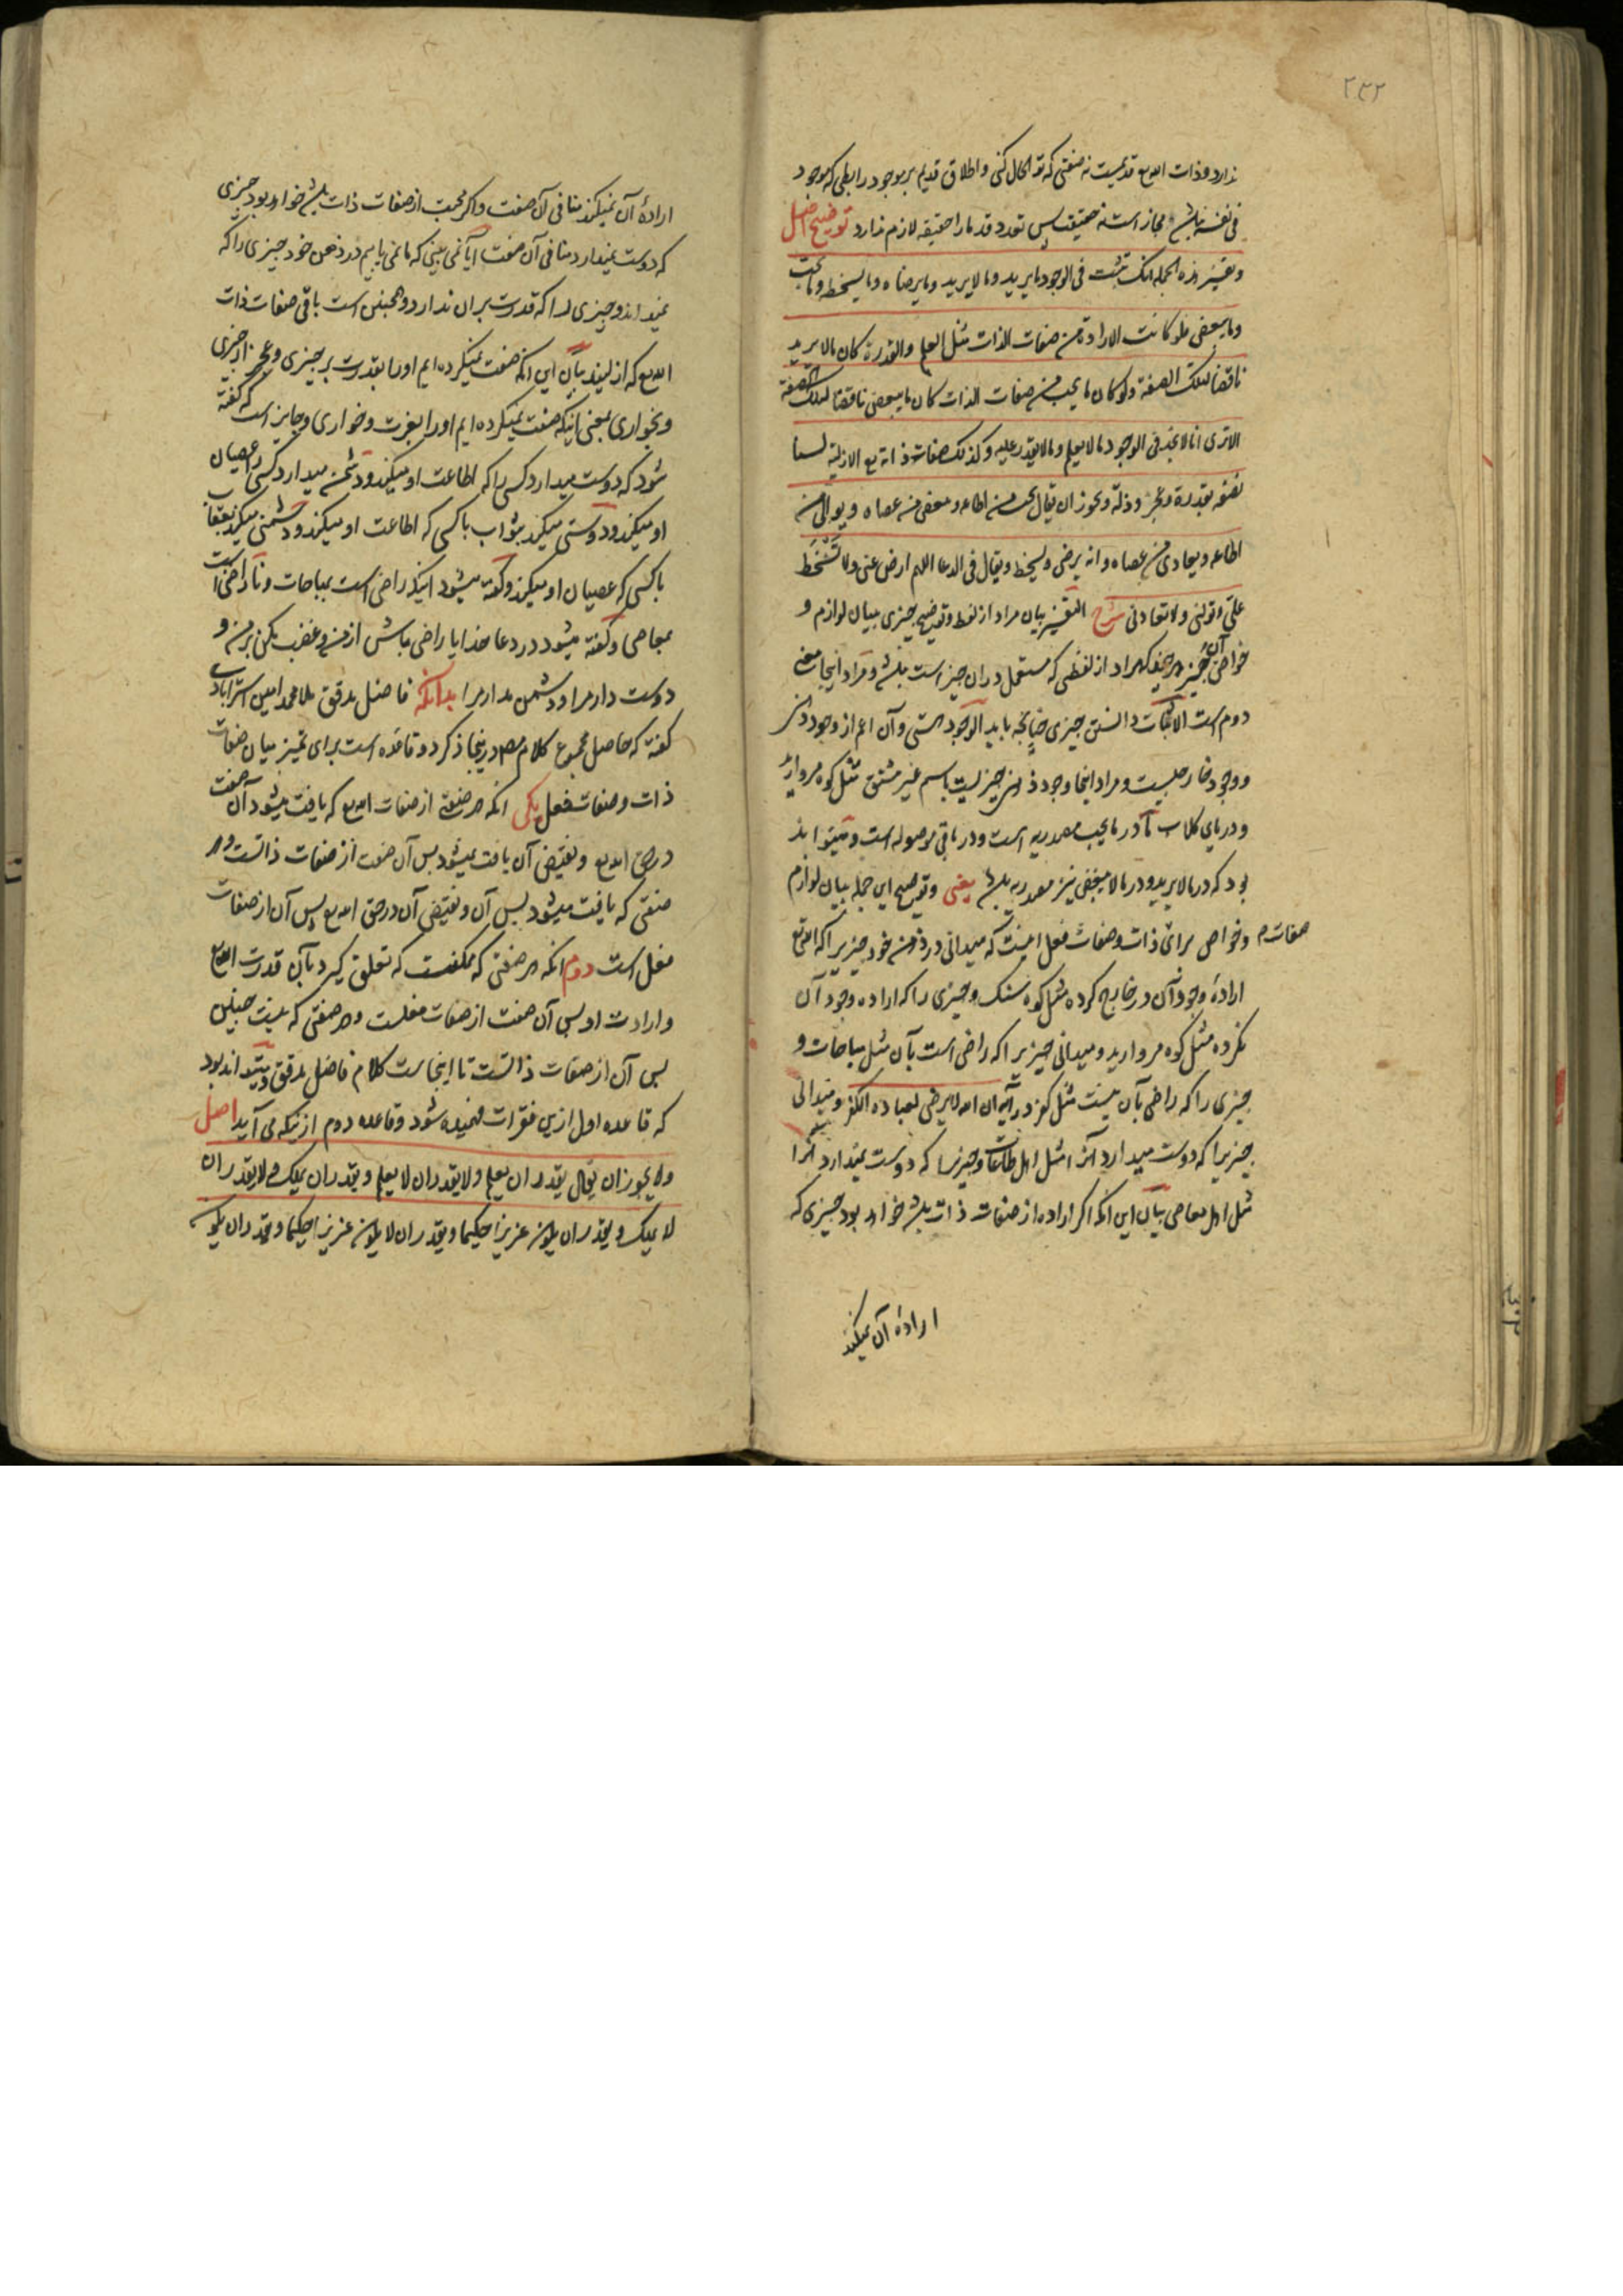 ۲۳۲
ندارد و ذات الله تع قدیمست نه صفتی که تو اکمال کنی و اطلاق قدیم بر موجود رابطی که موجود
فی نفسه نباشد مجاز است نه حقیقت پس تعدد قدما را حقیقة لازم ندارد توضیح اصل
و تفسیر هذه الجملة انک تثبت فی الوجود ما یرید و ما لا یرید و ما یرضاه و ما یسخطه و ما یحب
و ما یبغض فلو کانت الارادة من صفات الذات مثل العلم و القدرة کان ما لا یرید
ناقضا لتلک الصفة و لو کان ما یحب من صفات الذات کان ما یبغض ناقضا لتلک الصفة
الا تری انا لا نجد فی الوجود ما لا یعلم و ما لا یقدر علیه و کذلک صفات ذاته تع الازلیة لسنا
نصفه بقدرة و عجز و ذلة و یجوز ان یقال یحب من اطاعه و یبغض من عصاه و یوالی من
اطاعه و یعادی من عصاه و انه یرضی و یسخط و یقال فی الدعا اللهم ارض عنی و لا تسخط
علی و تولنی و لا تعادنی شرح التفسیر بیان مراد از لفظ و توضیح چیزی ببیان لوازم و
خواص آن چیز هر چند که مراد از لفظی که مستعمل در ان چیز است باشد و مراد اینجا معنی
دوم است الاثبات دانستن چیزی چنانچه باید الوجود هستی و آن اعم از وجود ذهنی
و وجود خارجیست و مراد اینجا وجود ذهنی چیزیست باسم غیر مشتق مثل کوه مروارید
و دریای کلاب ما در ما یحب مصدریه است و در باقی موصوله است و میتواند
بود که در ما لا یرید و در ما لا یبغض نیز مصدریه باشد یعنی و توضیح این جمله ببیان لوازم
و خواص برای ذات و صفات فعل اینست که میدانی در ذهن خود چیزیرا که الله تع
صفات م
ارادهٔ وجود آن در خارج کرده مثل کوه سنک و چیزی را که اراده وجود آن
نکرده مثل کوه مروارید و میدانی چیزیرا که راضی است بآن مثل مباحات و
چیزی را که راضی بآن نیست مثل کفر در آیه ان الله لا یرضی لعباده الکفر و میدانی
چیزیرا که دوست میدارد آنرا مثل اهل طاعات و چیزیرا که دوست نمیدارد آنرا
مثل اهل معاصی بیان این آنکه اگر اراده از صفات ذات باشد خواهد بود چیزی که
ارادهٔ آن نمیکند
ارادهٔ آن نمیکند منافی آن صفت و اگر محبت از صفات ذات باشد خواهد بود چیزی
که دوست نمیدارد منافی آن صفت آیا نمی بینی که ما نمی یابیم در ذهن خود چیزی را که
نمیداند و چیزی را که قدرت بر ان ندارد و همچنین است باقی صفات ذات
الله تع که ازلیند بیان این آنکه صفت نمیکرده ایم او را بقدرت بر چیزی و عجز از چیزی
و بخواری بمعنی اینکه صفت نمیکرده ایم او را بعزت و خواری و جایز است که گفته
شود که دوست میدارد کسی را که اطاعت او میکند و دشمن میدارد کسی را که عصیان
او میکند و دوستی میکند بثواب با کسی که اطاعت او میکند و دشمنی میکند بعقاب
با کسی که عصیان او میکند و گفته میشود اینکه راضی است بمباحات و ناراضی است
بمعاصی و گفته میشود در دعا خدایا راضی باش از من و غضب مکن بر من و
دوست دار مرا و دشمن مدار مرا بدانکه فاضل مدقق ملا محمد امین استرابادی
گفته که حاصل مجموع کلام مصـ در اینجا ذکر دو قاعده است برای تمیز میان صفات
ذات و صفات فعل یکی آنکه هر صفتی از صفات الله تع که یافت میشود آن صفت
در حق الله تع و نقیض آن یافت نمیشود پس آن صفت از صفات ذاتست و هر
صفتی که یافت میشود پس آن و نقیض آن در حق الله تع پس آن از صفات
فعل است دوم آنکه هر صفتی که ممکنست که تعلق گیرد بآن قدرت الله تع
و ارادت او پس آن صفت از صفات فعلست و هر صفتی که نیست چنین
پس آن از صفات ذاتست تا اینجاست کلام فاضل مدقق و میتواند بود
که قاعده اول ازین فقرات فهمیده شود و قاعده دوم از آنکه می آید اصل
و لا یجوز ان یقال یقدر ان یعلم و لا یقدر ان لا یعلم و یقدر ان یملک و لا یقدر ان
لا یملک و یقدر ان یکون عزیزا حکیما و یقدر ان لا یکون عزیزا حکیما و یقدر ان یکون